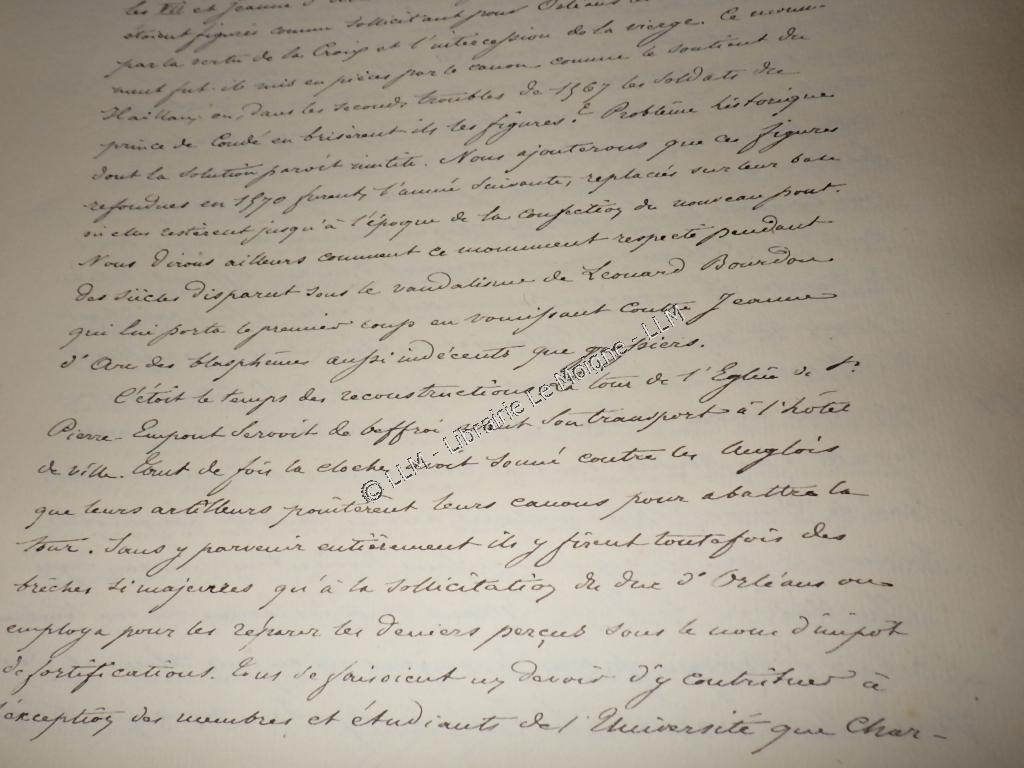 les VII et Jeanne d'
étaient figurés comme sollicitant pour Orléans
par la vertu de la Croix et l'intercession de la vierge. Ce monu-
ment fut-il mis en pièces par le canon comme le soutient du
Haillan; ou, dans les seconds troubles de 1567 les soldats du
prince de Condé en brisèrent ils les figures? Problême historique
dont la solution paroit inutile. Nous ajouterons que ces figures
refondues en 1570 furent, l'année suivante, replacées sur leur base
où elles restèrent jusqu'à l'époque de la confection du nouveau pont.
Nous dirons ailleurs comment ce monument respecté pendant
des siècles disparut sous le vandalisme de Léonard Bourdon
qui lui porta le premier coup en vomissant contre Jeanne
d'Arc des blasphêmes aussi indécents que grossiers.
C'étoit le temps des reconstructions. La tour de l'Eglise de St.
Pierre-Empont servoit de beffroi avant son transport à l'hôtel
de ville. Tant de fois la cloche avoit sonné contre les Anglois
que leurs artilleurs pointèrent leurs canons pour abattre la
tour. Sans y parvenir entièrement ils y firent toutefois des
brèches si majeures qu'à la sollicitation du duc d'Orléans on
employa pour les réparer les deniers perçus sous le nom d'impôt
de fortifications. Tous se faisoient un devoir d'y contribuer à
l'exception des membres et étudiants de l'Université que Char-
© LLM - Librairie Le Moigne - LLM